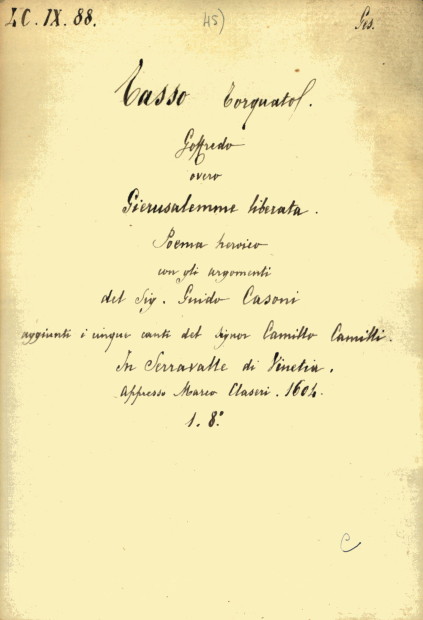 LC. IX. 88. 45) Ges.
Tasso Torquato.
Goffredo
overo
Gierusalemme liberata.
Poema heroico
con gli argomenti
del Sig. Guido Casoni
aggiunti i cinque canti del Signor Camillo Camilli.
In Serravalle di Vinetia.
Appresso Marco Claseri. 1604.
1. 8.º
C